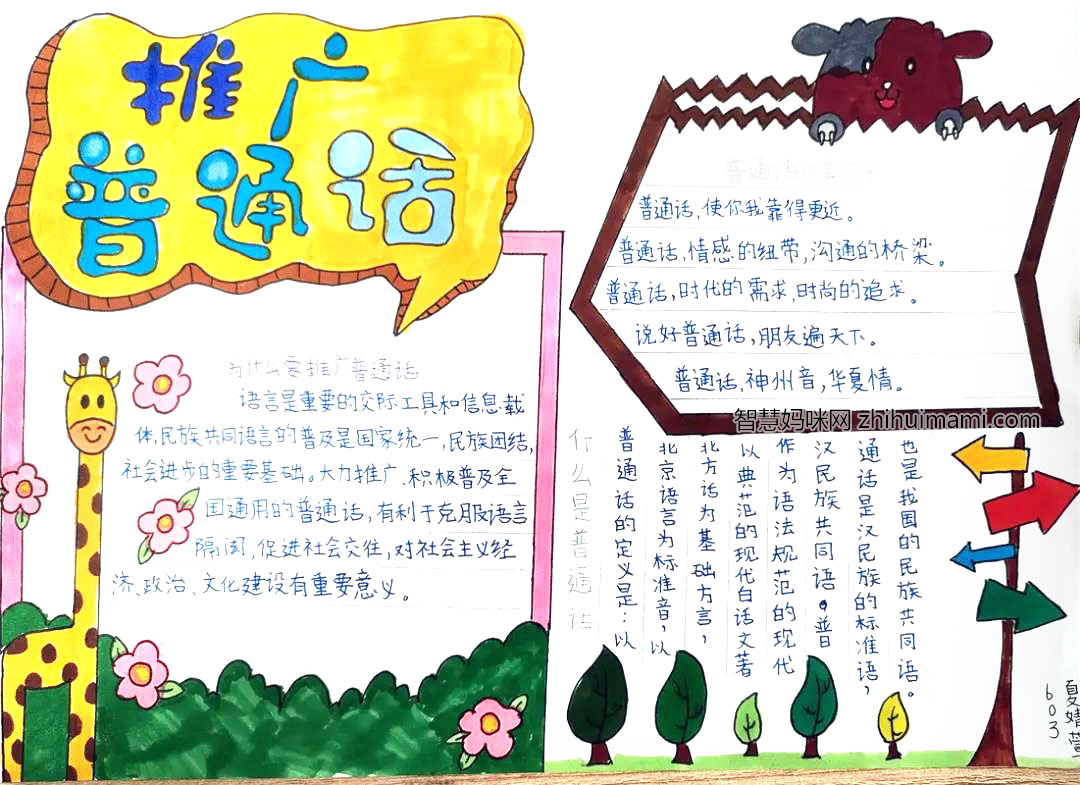 推广
普通话
为什么要推广普通话
语言是重要的交际工具和信息载
体,民族共同语言的普及是国家统一,民族团结,
社会进步的重要基础。大力推广、积极普及全
国通用的普通话,有利于克服语言
隔阂,促进社会交往,对社会主义经
济、政治、文化建设有重要意义。
普通话优美句子
普通话,使你我靠得更近。
普通话,情感的纽带,沟通的桥梁。
普通话,时代的需求,时尚的追求。
说好普通话,朋友遍天下。
普通话、神州音,华夏情。
智慧妈咪网 zhihuimami.com
什么是普通话
普通话的定义是:以
北京语言为标准音,以
北方话为基础方言,
以典范的现代白话文著
作为语法规范的现代
汉民族共同语。普
通话是汉民族的标准语,
也是我国的民族共同语。
603
夏婧萱